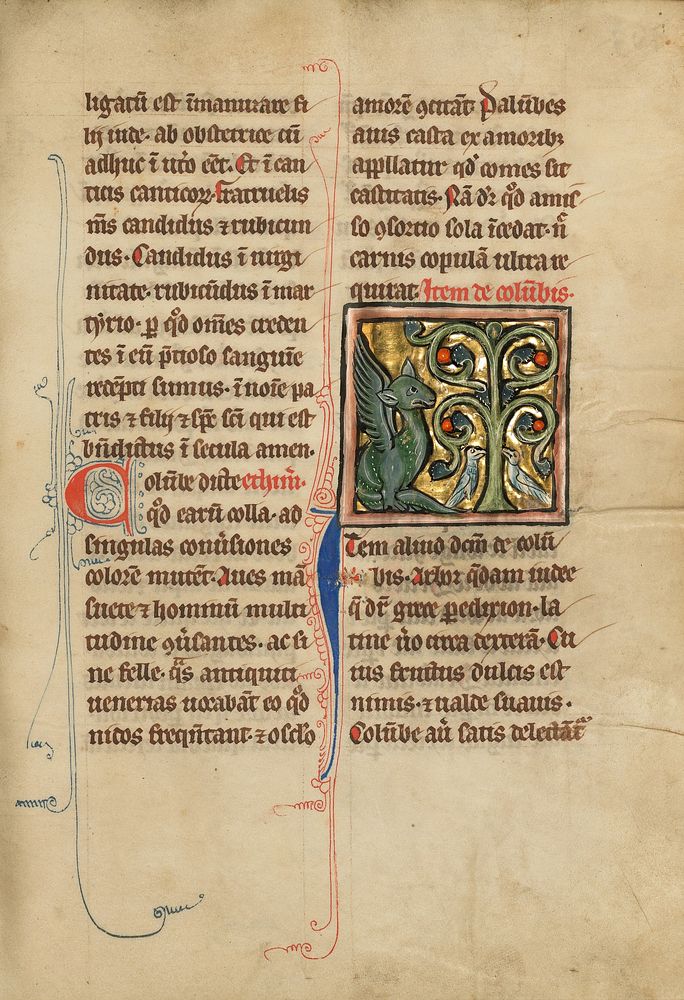 ligatū est īmanurare fi
lij iude· ab obstetrice cū
adhuc ī uto eēt· Et ī can
ticis canticoꝝ· Fratruelis
mꝭ candidus ⁊ rubicun
dus· Candidus ī uirgi
nitate· rubicūdus ī mar
tyrio· ꝑ qď om̄es creden
tes ī eū p̄tioso sanguīe
redēpti sumus· ī noīe pa
tris ⁊ filij ⁊ sp̄c sc̄i qui est
bn̄dictus ī secula amen·
Colūbe dicte ethim̄·
qď earū colla· ad
singulas con̄siones
colorē mutēt· Aues mā
suete ⁊ hominū multi
tudine 9ūsantes· ac si
ne felle· q̄s antiquiti
uenerias uocabāt eo qď
nidos freqn̄tant· ⁊ osc̄lo
amorē 9citāt· Palūbes
auis casta ex amoribꝫ
appllatur qď comes sit
castitatis· Nā dr̄ qď amis
so 9sortio sola īcedat· n̄
carnis copulā ultra re
quirat· Item de colūbis·
Item aliud dcm̄ de colū
bis· Arbor q̄dam iudee
q̄ dr̄ grece ꝑedixion· la
tine ūo circa dexterā· Cu
ius fructus dulcis est
nimis· ⁊ ualde suauis·
Colūbe aū satis delectāt᷑